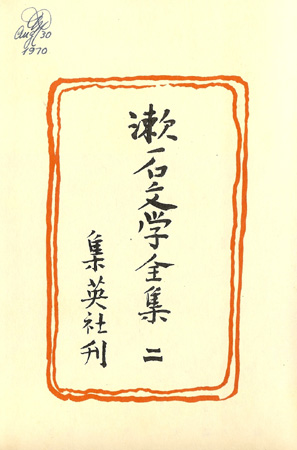 Aug/30
1970
漱石文学全集 二
集英社刊